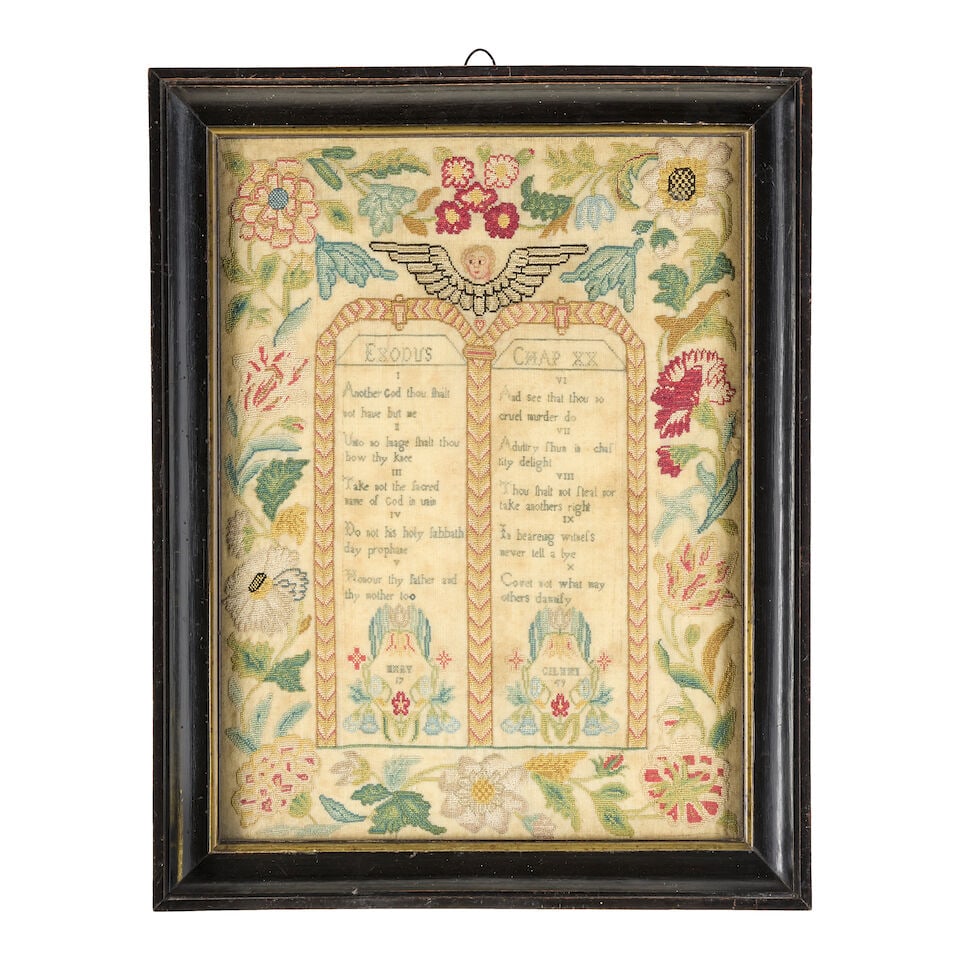 EXODUS
I
Another God thou shalt
not have but me
II
Unto no Image shalt thou
bow thy knee
III
Take not the sacred
name of God in vain
IV
Do not his holy sabbath
day prophane
V
Honour thy father and
thy mother too
MARY
17
CHAP XX
VI
And see that thou no
cruel murder do
VII
Adultry shun in chas
tity delight
VIII
Thou shalt not steal nor
take anothers right
IX
In beareing witness
never tell a lye
X
Covet not what may
others damnify
59